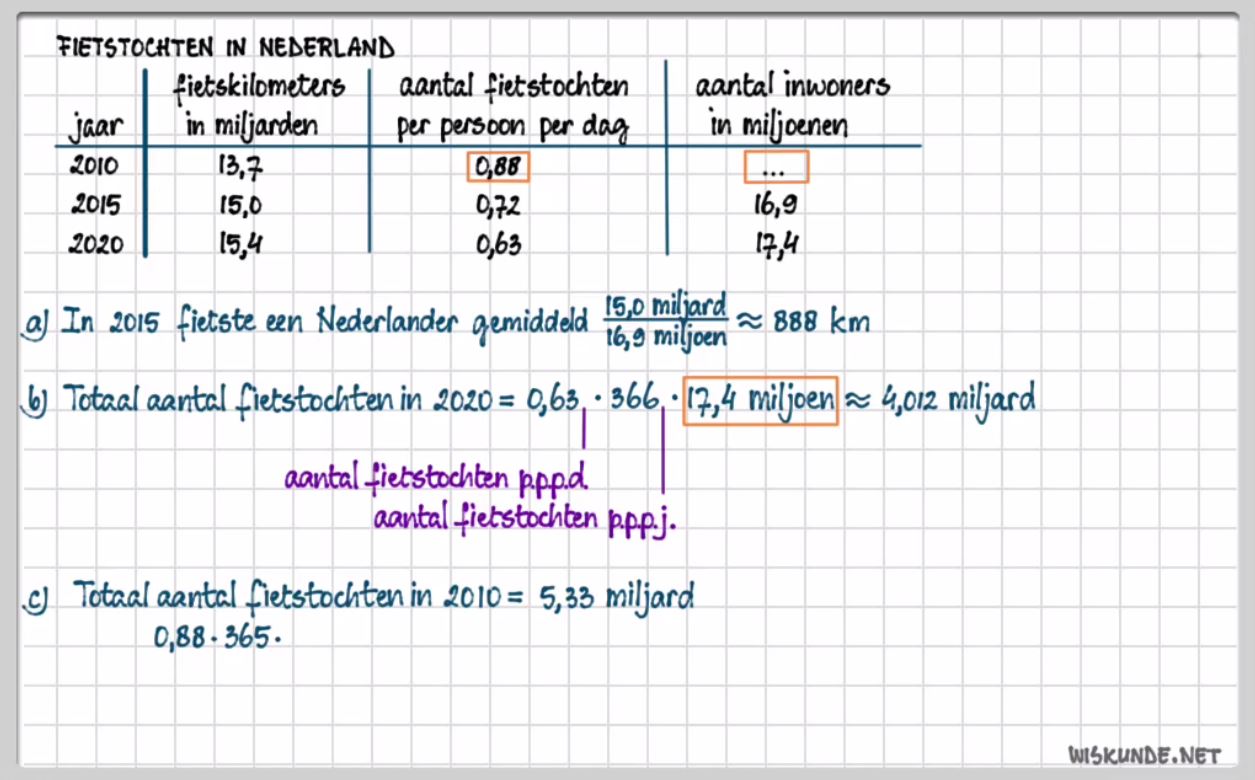 FIETSTOCHTEN IN NEDERLAND
jaar | fietskilometers in miljarden | aantal fietstochten per persoon per dag | aantal inwoners in miljoenen
2010 | 13,7 | 0,88 | ...
2015 | 15,0 | 0,72 | 16,9
2020 | 15,4 | 0,63 | 17,4
a) In 2015 fietste een Nederlander gemiddeld 15,0 miljard / 16,9 miljoen ≈ 888 km
b) Totaal aantal fietstochten in 2020 = 0,63 · 366 · 17,4 miljoen ≈ 4,012 miljard
aantal fietstochten p.p.p.d.
aantal fietstochten p.p.p.j.
c) Totaal aantal fietstochten in 2010 = 5,33 miljard
0,88 · 365 ·
WISKUNDE.NET